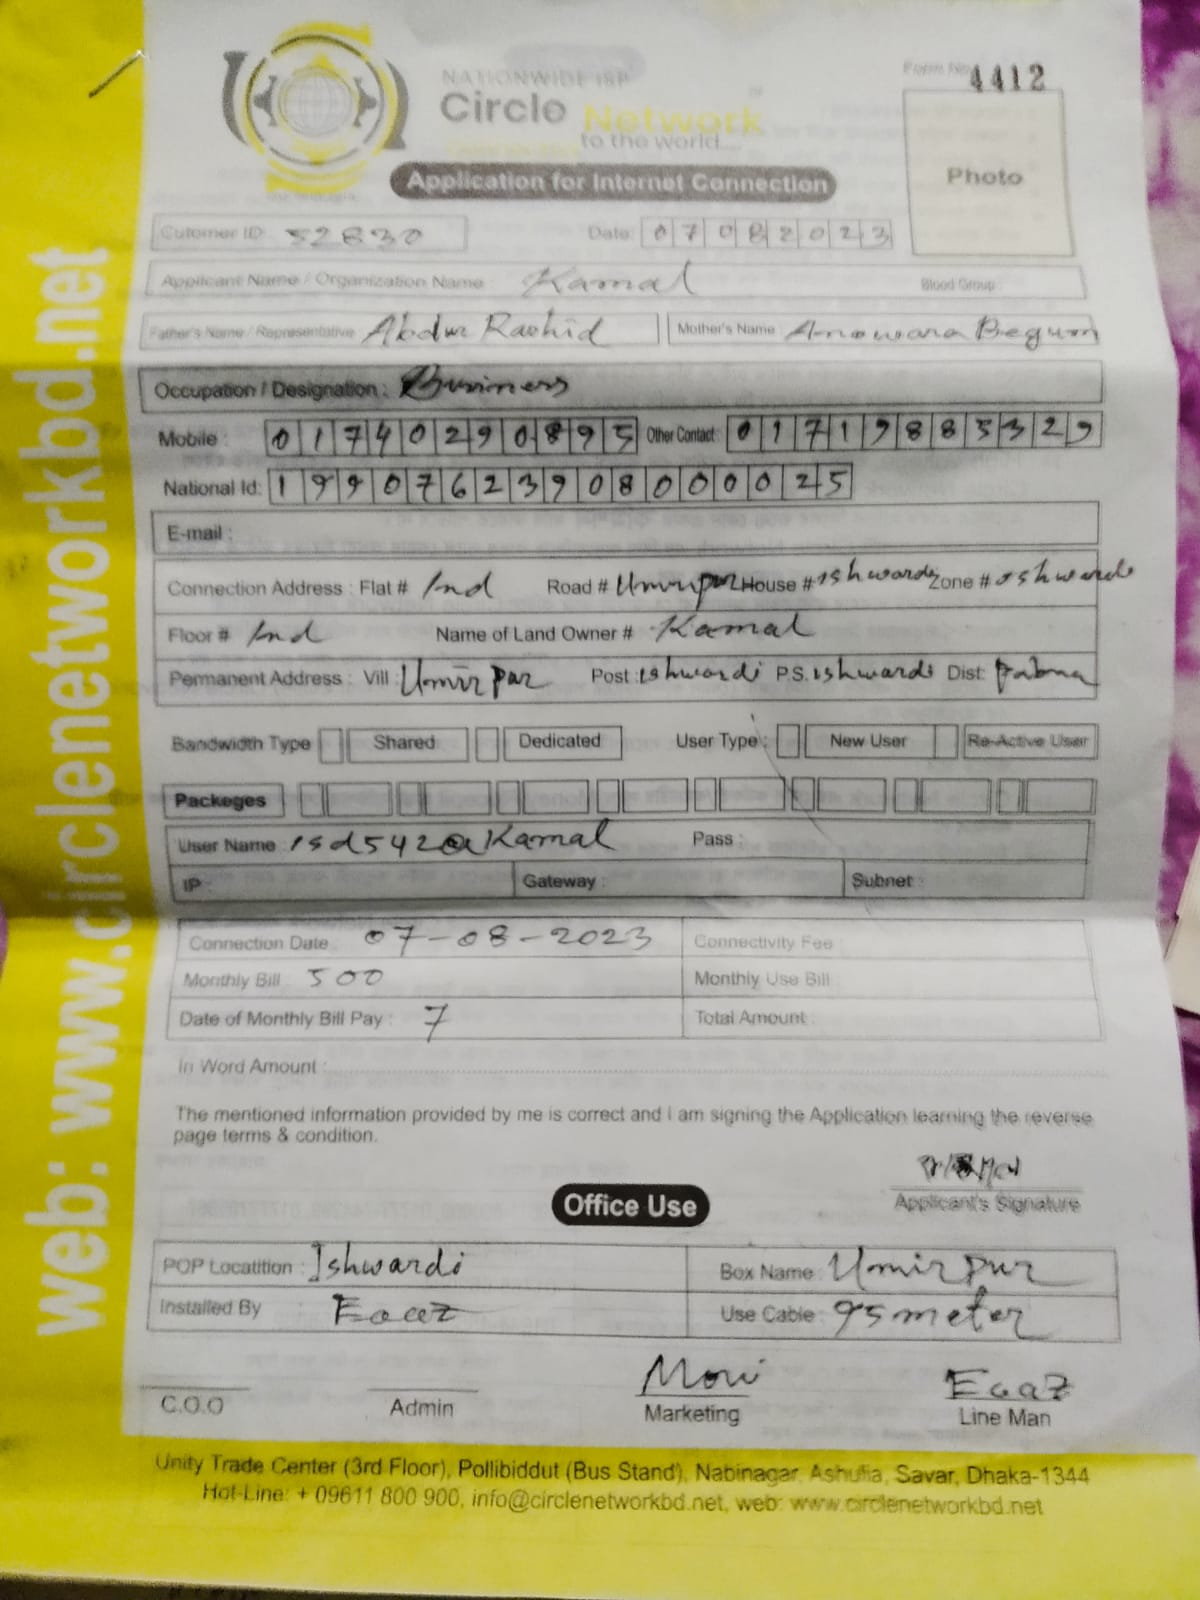 NATIONWIDE ISP
Circle Network
to the world...
Form No 4412
Photo
Application for Internet Connection
Cutomer ID: 52830 Date: 07082023
Applicant Name / Organization Name : Kamal Blood Group :
Father's Name / Representative Abdur Rashid Mother's Name : Anowara Begum
Occupation / Designation : Business
Mobile : 01740290895 Other Contact: 01719885329
National Id: 19907623908000025
E-mail :
Connection Address : Flat # Ind Road # Umirpur House # ishwardi Zone # ishwardi
Floor # Ind Name of Land Owner # Kamal
Permanent Address : Vill : Umirpur Post : ishwardi P.S. ishwardi Dist: Pabna
Bandwidth Type Shared Dedicated User Type : New User Re-Active User
Packeges
User Name : isd542@Kamal Pass :
IP : Gateway : Subnet :
Connection Date : 07-08-2023 Connectivity Fee :
Monthly Bill : 500 Monthly Use Bill :
Date of Monthly Bill Pay : 7 Total Amount :
In Word Amount :
The mentioned information provided by me is correct and I am signing the Application learning the reverse
page terms & condition.
Applicant's Signature
Office Use
POP Locatition : Ishwardi Box Name : Umirpur
Installed By Eaaz Use Cable : 95 meter
C.O.O Admin Moni Marketing Eaaz Line Man
Unity Trade Center (3rd Floor), Pollibiddut (Bus Stand), Nabinagar, Ashulia, Savar, Dhaka-1344
Hot-Line: + 09611 800 900, info@circlenetworkbd.net, web: www.circlenetworkbd.net
web: www.circlenetworkbd.net